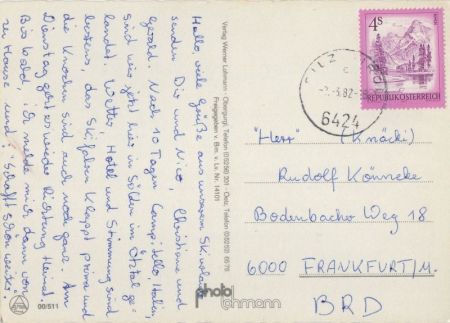 Hallo, viele Grüße aus unserem Skiurlaub
senden Dir und Nico, Christiane und
Gerald. Nach 10 Tagen Campitello, Italien,
sind wir jetzt hier in Sölden im Ötztal ge-
landet. Wetter, Hotel und Stimmung sind
bestens, das Skifahren klappt prima und
die Knochen sind auch noch ganz. Am
Dienstag geht es wieder Richtung Heimat.
Bis bald, ich melde mich dann von
zu Hause und: "Schafft schön weiter."
00/511
Verlag Werner Lohmann · Obergurgl, Telefon (05256) 201 · Oetz, Telefon (05252) 6578
Freigegeben v. Bm. v. Lv. Nr. 14101
photo
lohmann
4S
REPUBLIK ÖSTERREICH
6424
"Herr" (Knäcki)
Rudolf Könneke
Bodenbacher Weg 18
6000 FRANKFURT/M.
BRD